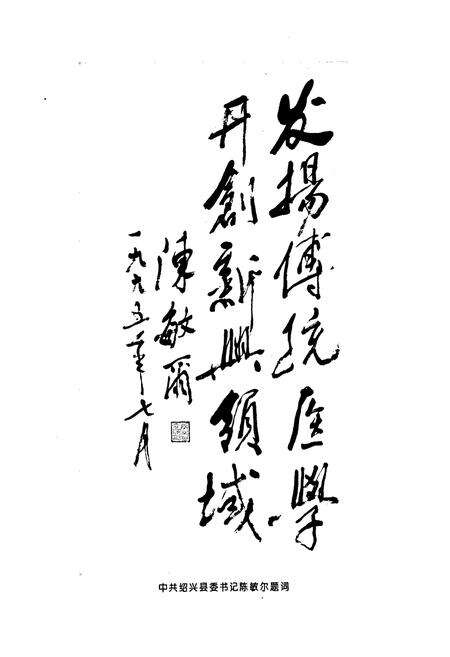 发揚傳统医學
开創新興領域
陳敏爾
一九九五年七月
中共绍兴县委书记陈敏尔题词